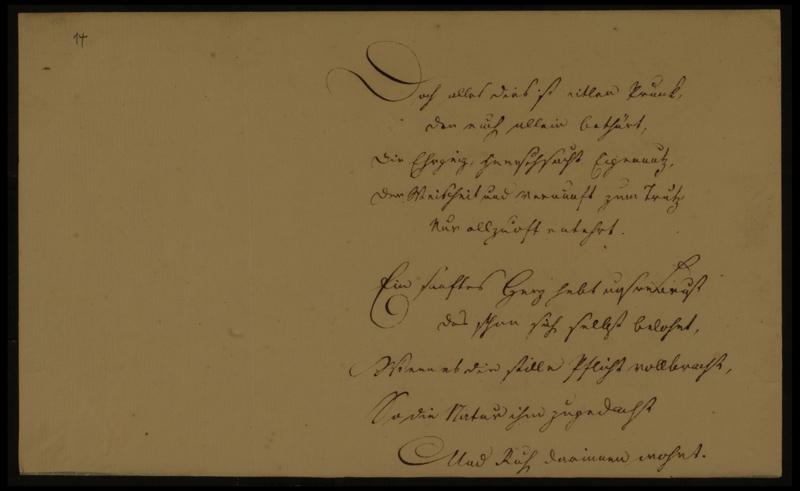 14
Doch alles dies ist eitler Prunk,
der euch allein bethört,
Die Ehrgeiz, Herrschsucht Eigennutz,
Der Weisheit und vernunft zum Trutz
Nur allzuoft entehrt.
Ein sanftes Herz hebt unsre Brust
das schon sich selbst belohnt,
Wenn es die stille Pflicht vollbracht,
So die Natur ihm zugedacht
Und Ruh darinnen wohnt.